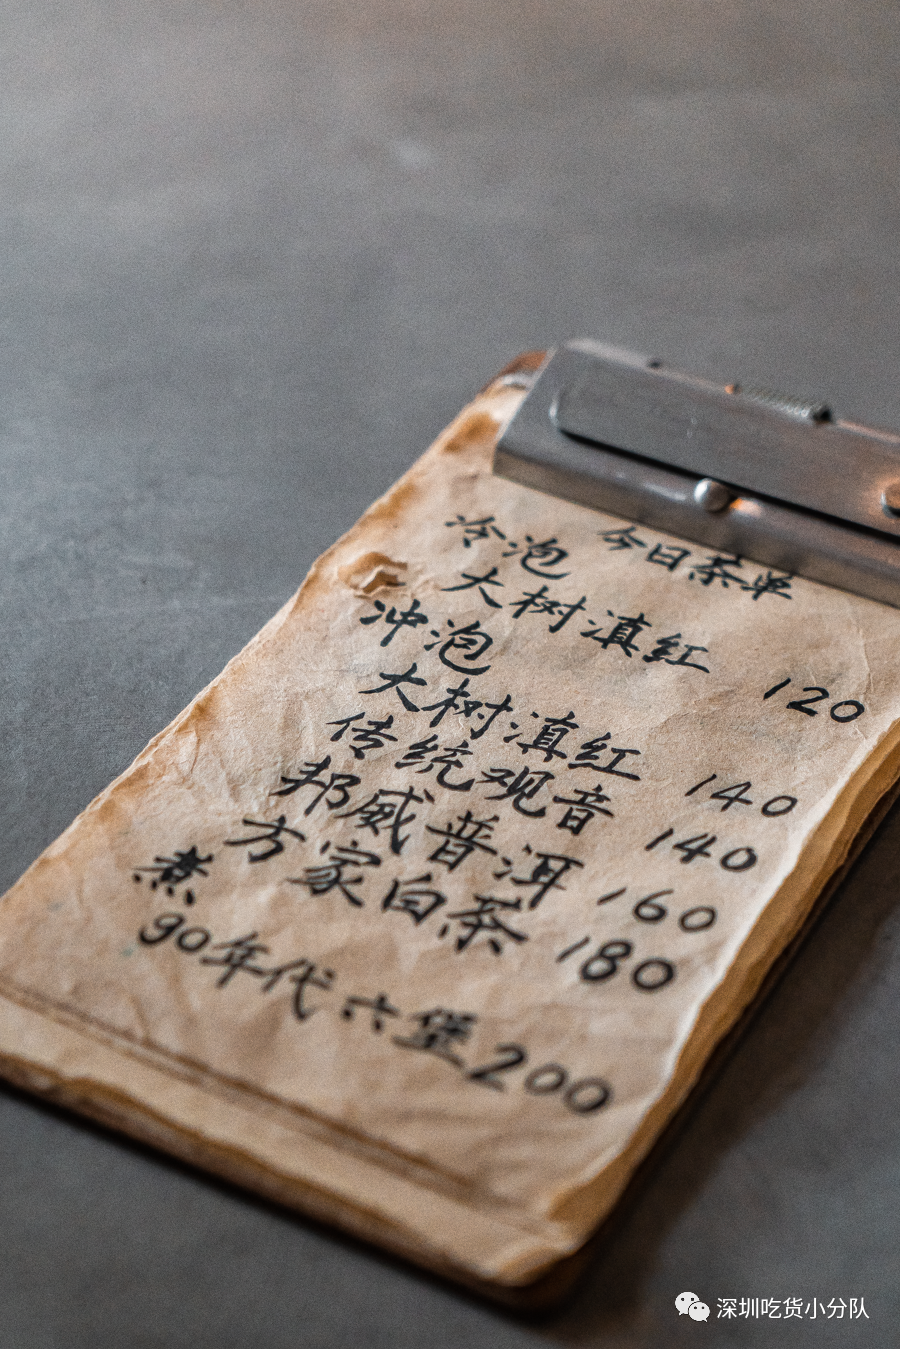 今日茶单
冷泡
大树滇红 120
冲泡
大树滇红 140
传统观音 140
邦威普洱 160
方家白茶 180
煮
90年代六堡 200
深圳吃货小分队